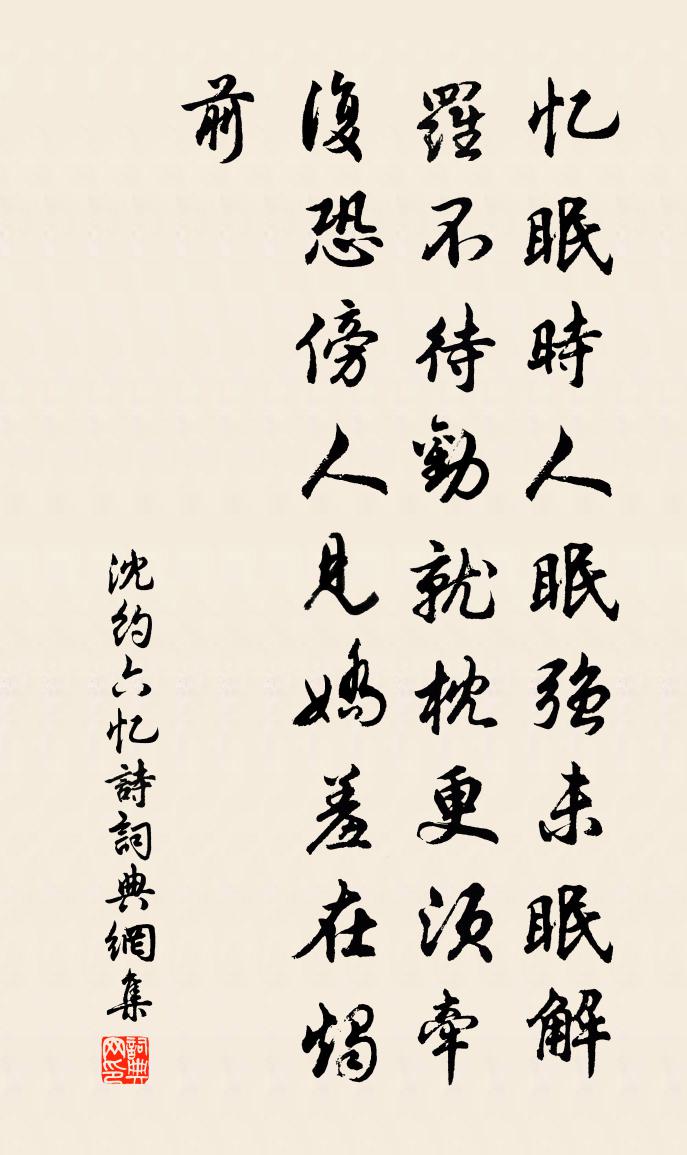 忆眠時人眠強未眠解
羅不待勸就枕更須牽
復恐傍人見嬌羞在燭
前
沈約六忆詩詞典網集
詞典网印